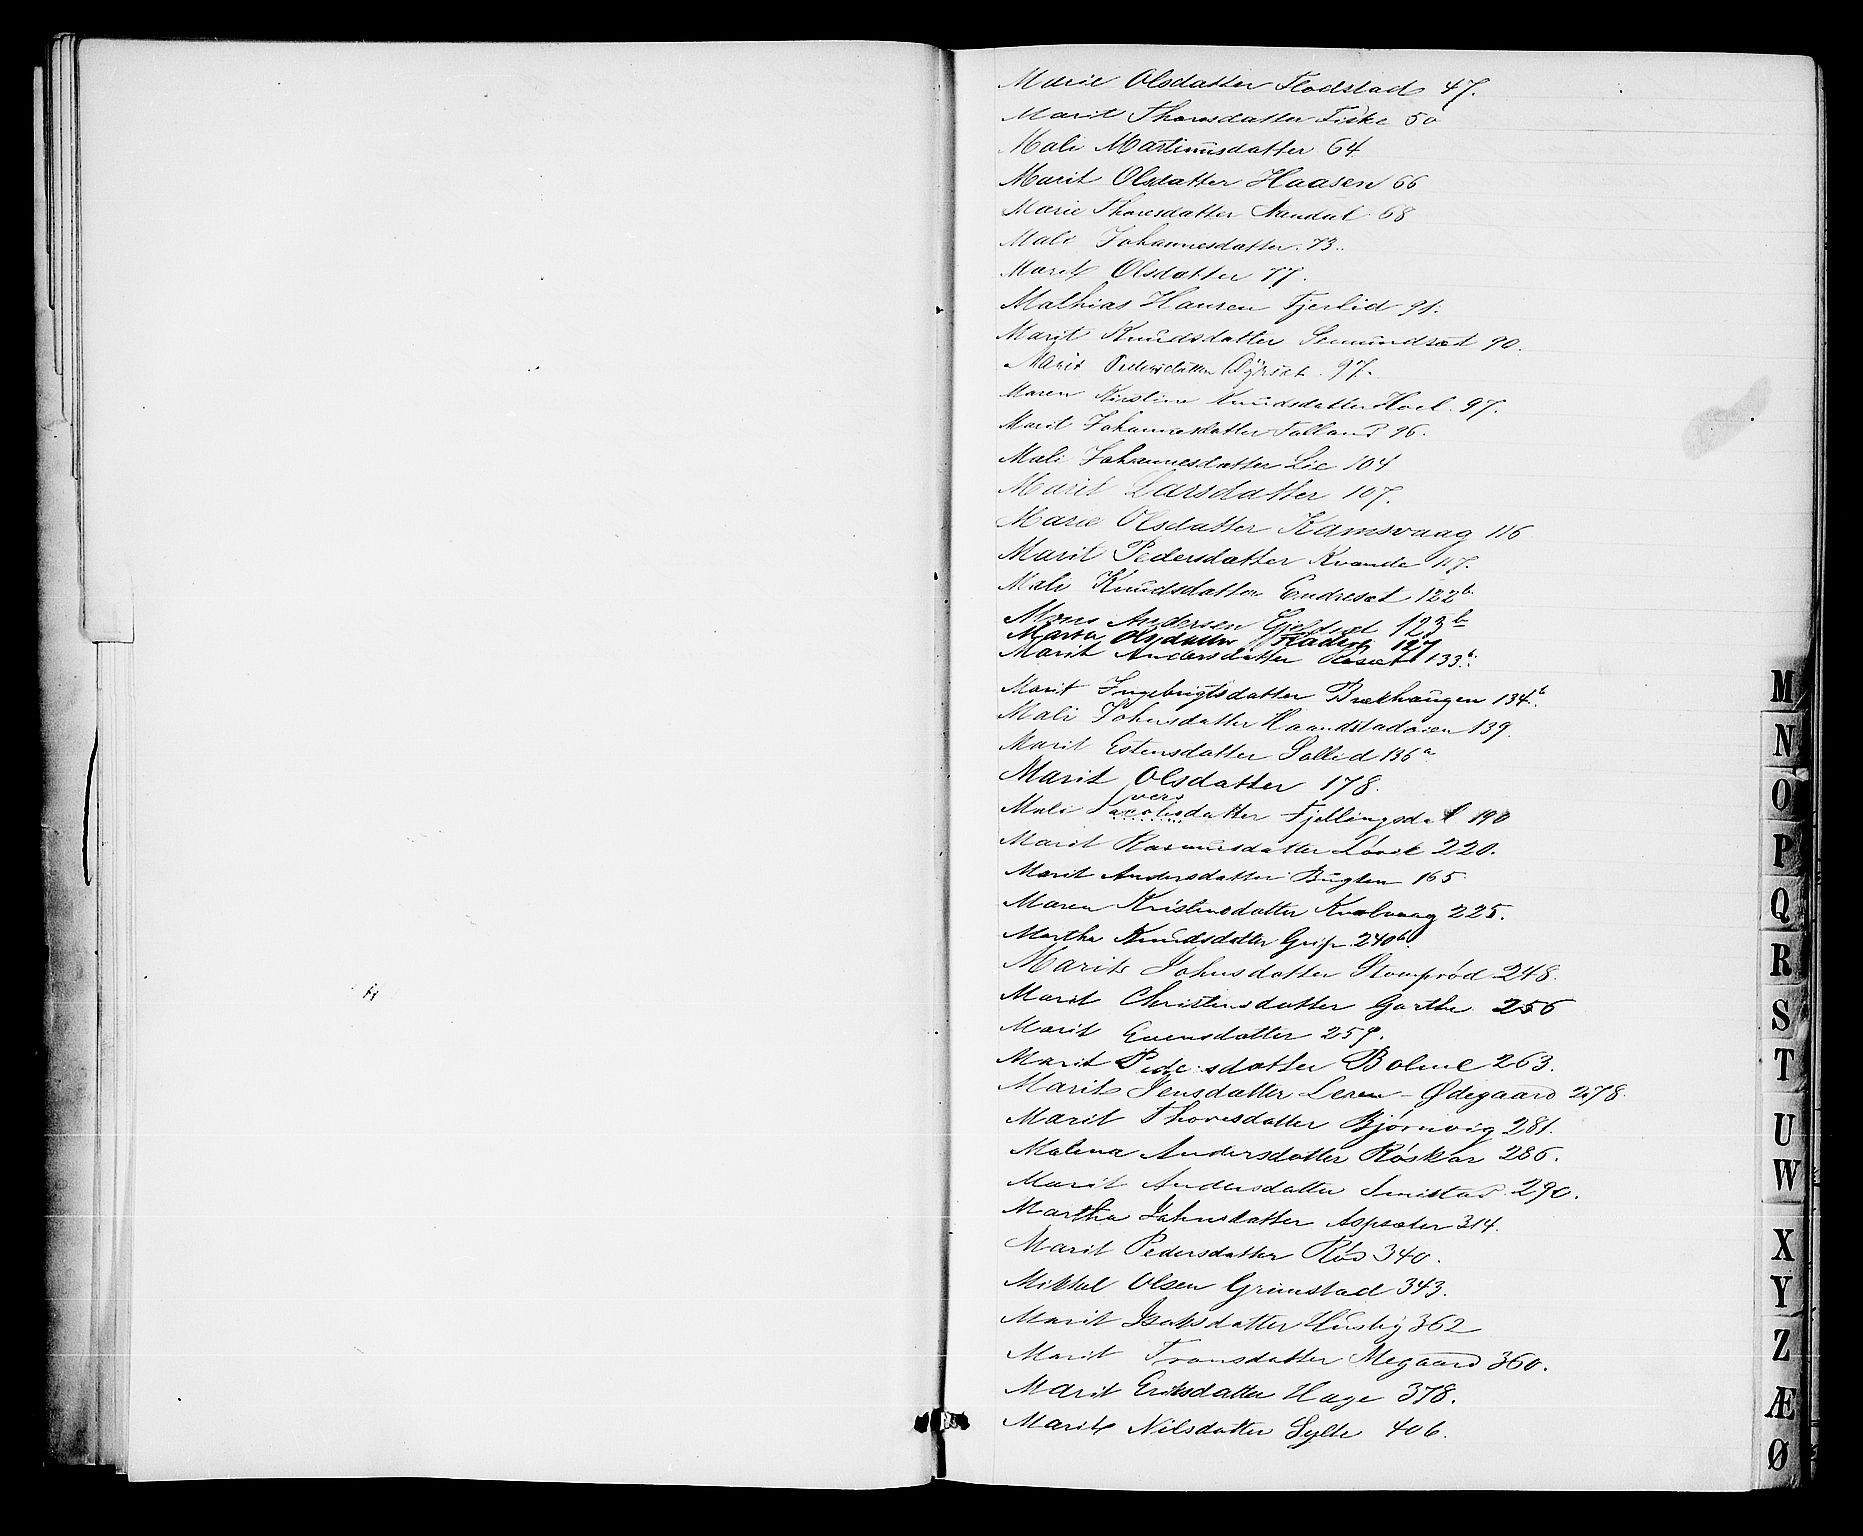 Marie Olsdatter Flodstad 47.
Marit Thoresdatter Fiske 50
Mali Martinusdatter 64
Marit Olsdatter Haasen 66
Marie Thoresdatter 68
Mali Johannesdatter 73.
Marit Olsdatter 77.
Mathias Hansen Fjerlid 91.
Marit Knudsdatter Semundsæt 90.
Marit Pedersdatter Dÿrset 97.
Maren Kirstine Knudsdatter Hoel 97.
Marit Johannesdatter Falland 96.
Mali Johannesdatter Lie 104
Marit Larsdatter 107.
Marie Olsdatter Kamsvaag 116
Marit Pedersdatter Kvande 117.
Mali Knudsdatter Endreset 122b.
Mons Andersen Gjeldset 123b
Marta Olsdatter 127
Marit Andersdatter Røsæt 133b.
Marit Ingebrigtsdatter Brækhaugen 134b.
Mali Johnsdatter Haandstadøien 139.
Marit Estensdatter Sollid 136a
Marit Olsdatter 178.
vers
Mali Jacobsdatter Fjellingsdal 190
Marit Rasmusdatter Løvik 220.
Marit Andersdatter Bugten 165
Maren Kristensdatter Kvalvaag 225.
Martha Knudsdatter Grip 240b.
Marit Johnsdatter Stomprød 248.
Marit Christensdatter Garthe 256
Marit Evensdatter 259.
Marit Pedersdatter Bolme 263.
Marit Jensdatter Leren-Ødegaard 278.
Marit Thoresdatter Bjørnvig 281.
Malena Andersdatter Røskar 286.
Marit Andersdatter Smistad 290.
Martha Johnsdatter Aspsæter 314.
Marit Pedersdatter Rød 340.
Mikkel Olsen Grimstad 343.
Marit Isaksdatter Husby 362
Marit Tronsdatter Megaard 360.
Marit Eriksdatter Hage 378.
Marit Nilsdatter Sylte 406.
M
N
O
P
Q
R
S
T
U
W
X
Y
Z
Æ
Ø